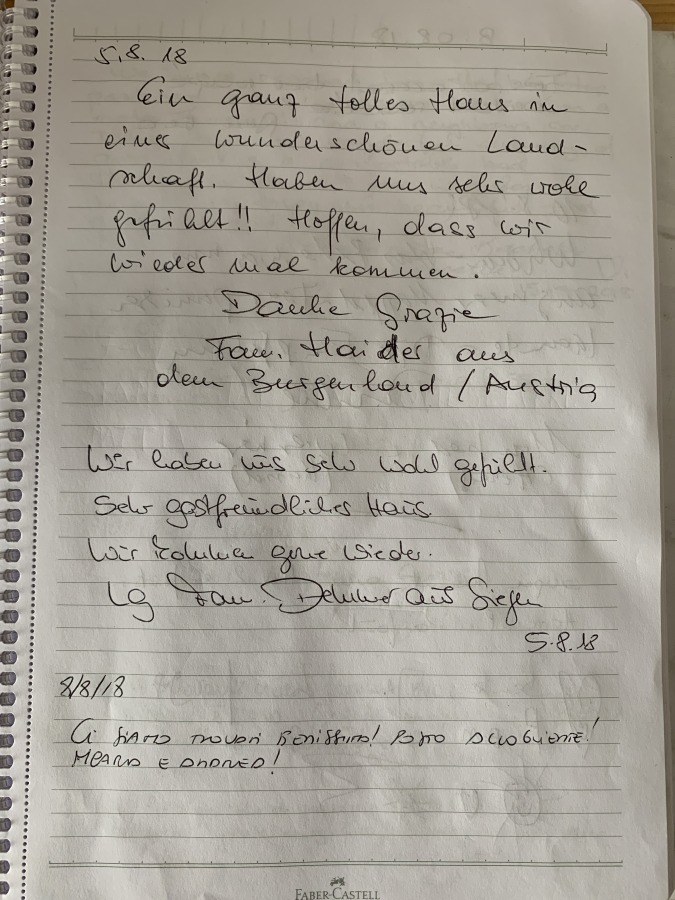 5.8.18
Ein ganz tolles Haus in
einer wunderschönen Land-
schaft. Haben uns sehr wohl
gefühlt!! Hoffen, dass wir
wieder mal kommen.
Danke Grazie
Fam. Haider aus
dem Burgenland / Austria
Wir haben uns sehr wohl gefühlt.
Sehr gastfreundliches Haus.
Wir kommen gerne wieder.
Lg Fam. aus Siegen
5.8.18
8/8/18
CI SIAMO TROVATI BENISSIMO! POSTO ACCOGLIENTE!
E ANDREA!
FABER-CASTELL